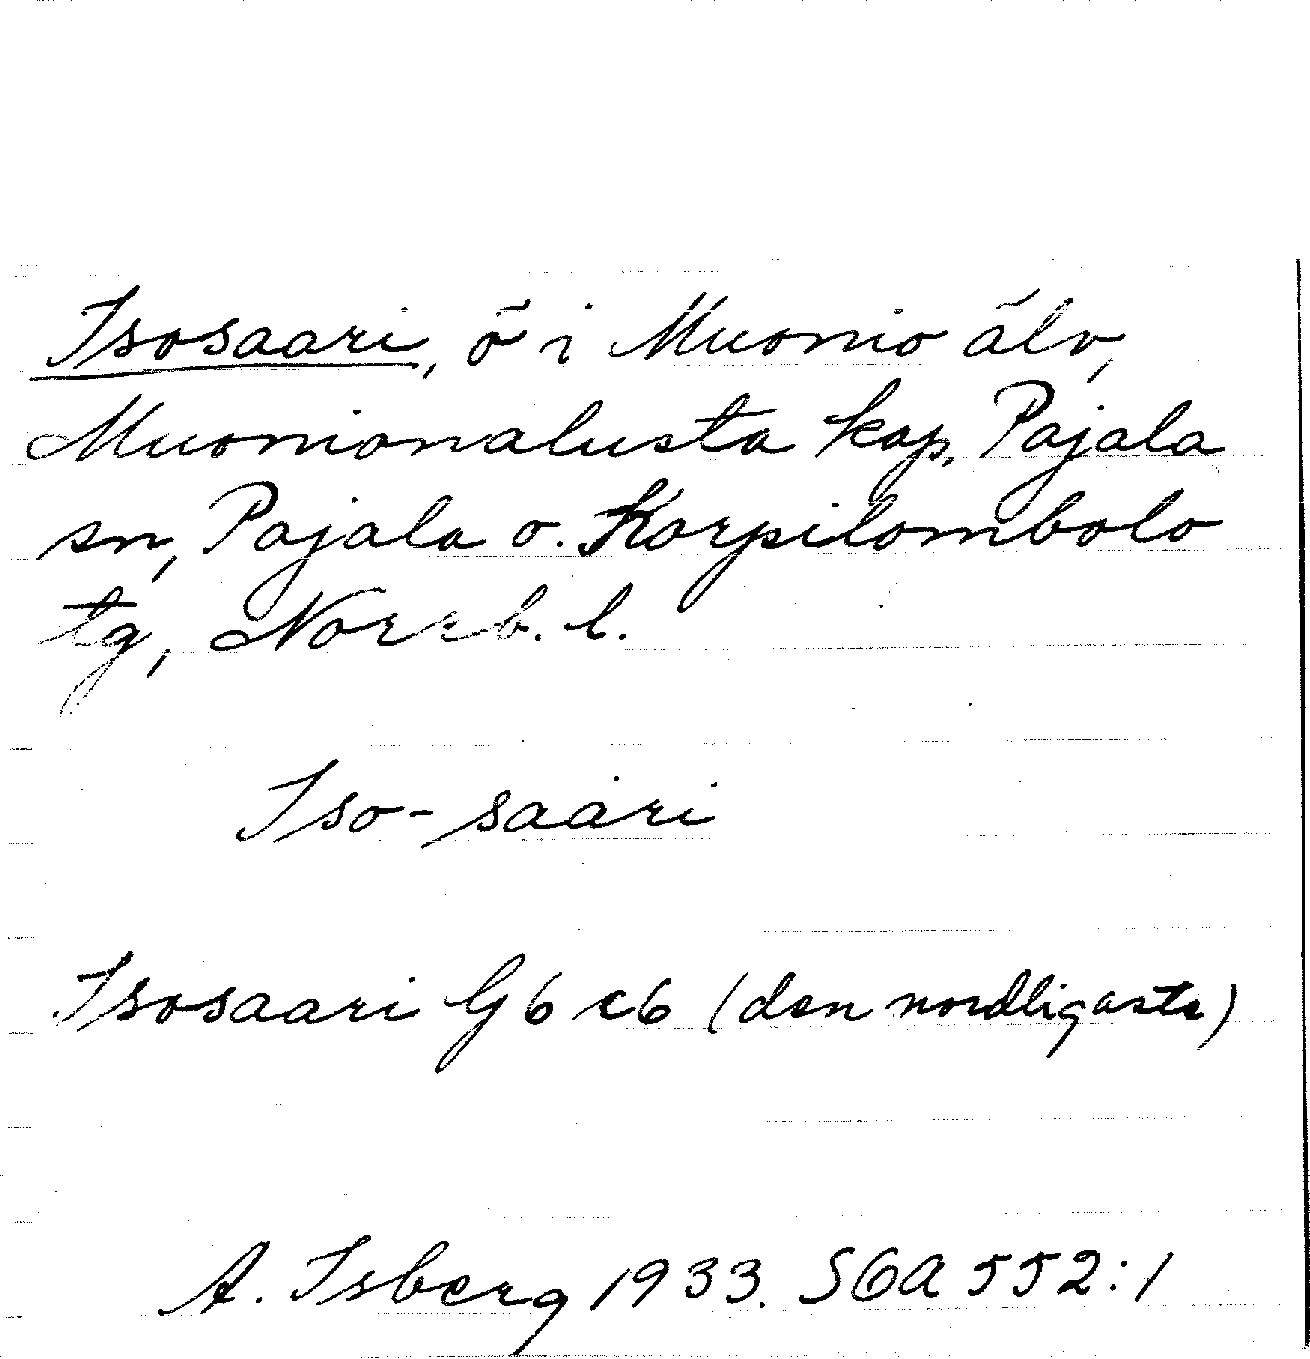 Isosaari, ö i Muonio älv,
Muonionalusta kap, Pajala
sn, Pajala o. Korpilombolo
tg, Norrb. l.
Iso-saari
Isosaari G6 c6 (den nordligaste)
A. Isberg 1933. SOA 552:1